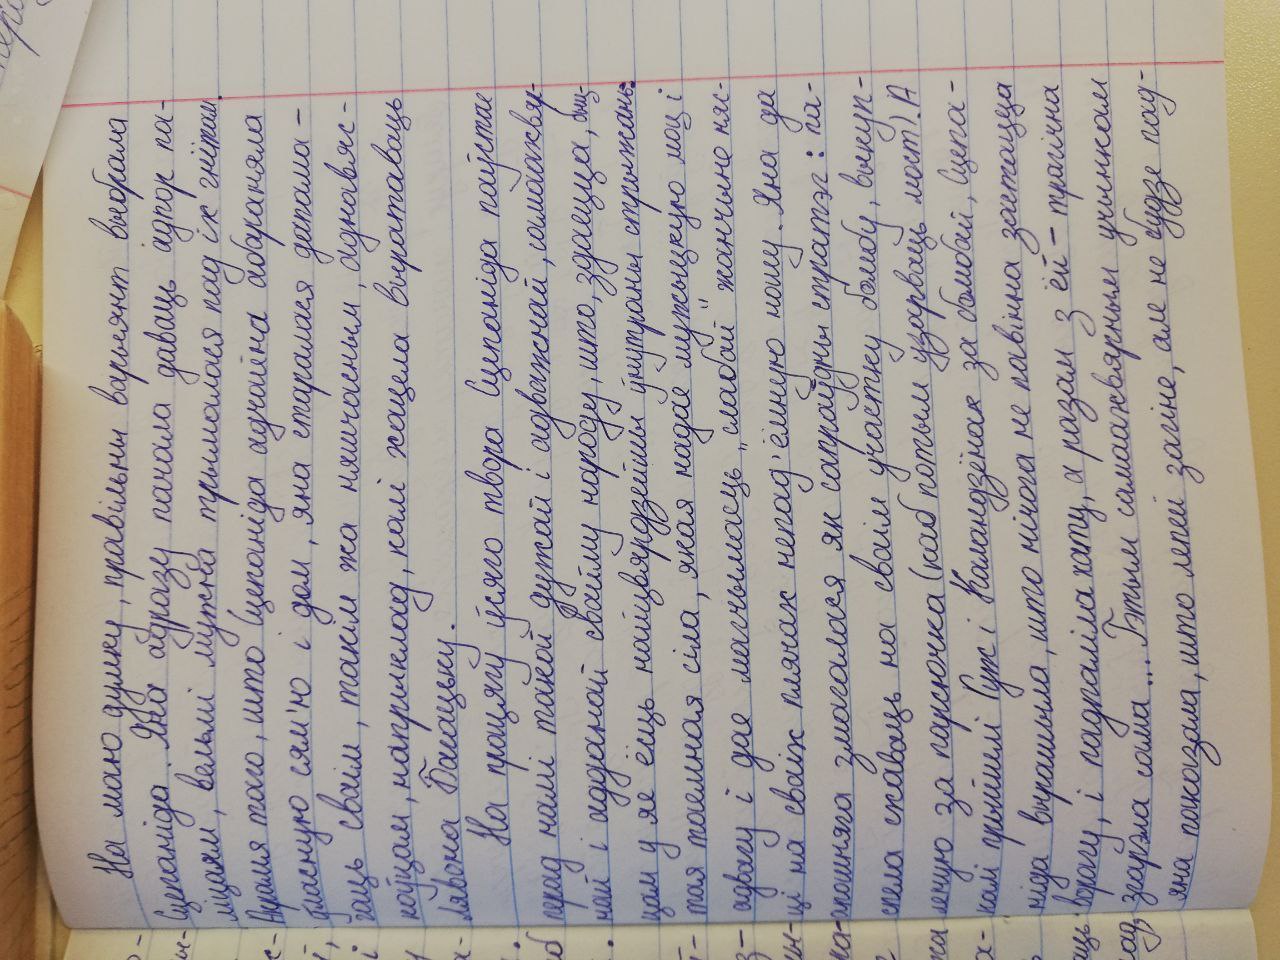 На маю думку, правільны варыянт выбрала
Сцепаніда. Яна адразу пачала даваць адпор па-
ліцаям, вельмі мужна трымалася пад іх гнётам.
Акрамя таго, што Сцепаніда адчайна абараняла
ўласную сям'ю і дом, яна старалася дапама-
гаць сваім, такім жа няшчасным, аднавяс-
коўцам, напрыклад, калі хацела выратаваць
Лявона Баганьку.
На працягу ўсяго твора Сцепаніда паўстае
перад намі такой дужай і адважнай, самаахвяр-
най і адданай свайму народу, што, здаецца, быц-
цам у яе ёсць найцвярдзейшы ўнутраны стрыжань.
тая таемная сіла, якая надае мужыцкую моц і
адвагу і дае магчымасць "слабой" жанчыне няс-
ці на сваіх плячах непад'ёмную ношу. Яна да
апошняга змагалася як сапраўдны стратэг: па-
спела схаваць на сваім участку бомбу, выкуп-
леную за парсючка (каб потым узарваць мост). А
калі прыйшлі Гуж і Каландзёнак за бомбай, Сцепа-
ніда вырашыла, што нічога не павінна застацца
ворагу, і падпаліла хату, а разам з ёй - трагічна
згарэла сама... Гэтым самаахвярным учынкам
яна паказала, што лепей загіне, але не будзе пад-